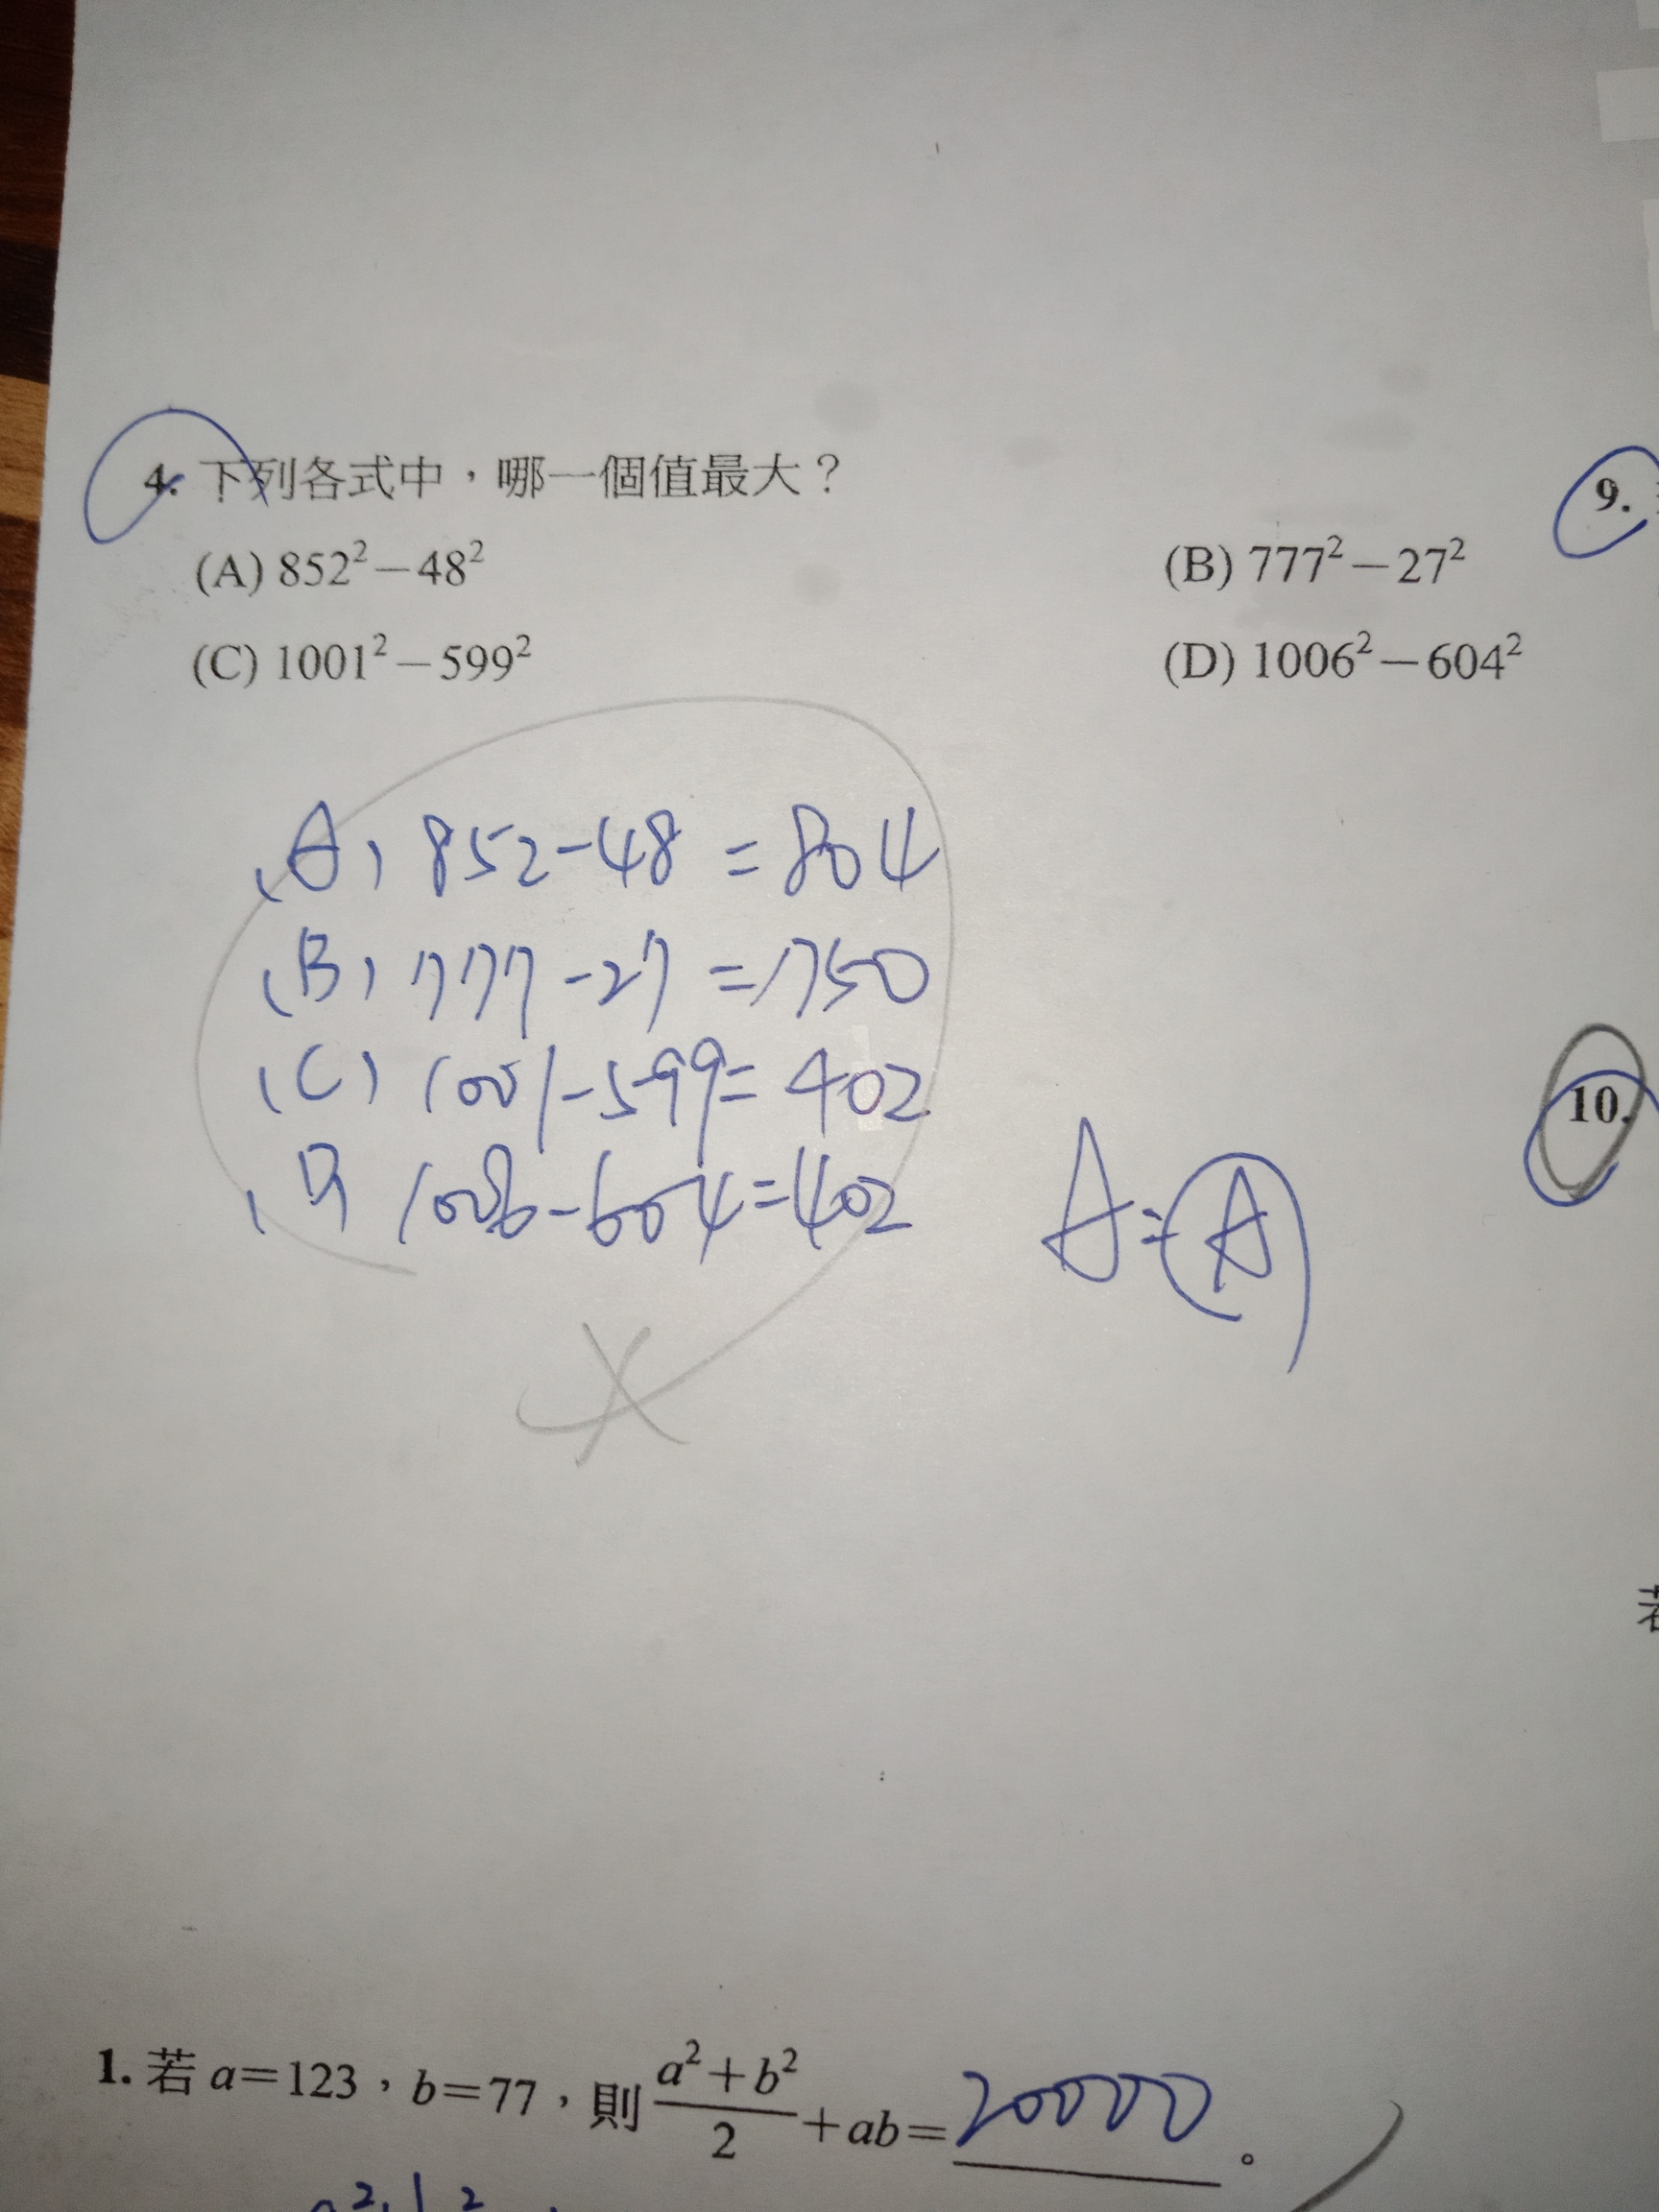 4. 下列各式中，哪一個值最大？
(A) 852²－48²
(B) 777²－27²
(C) 1001²－599²
(D) 1006²－604²
(A) 852-48=804
(B) 777-27=750
(C) 1001-599=402
(D) 1006-604=402
A=(A)
9.
10.
若
1. 若 a=123，b=77，則 (a²+b²)/2 +ab= 20000 。